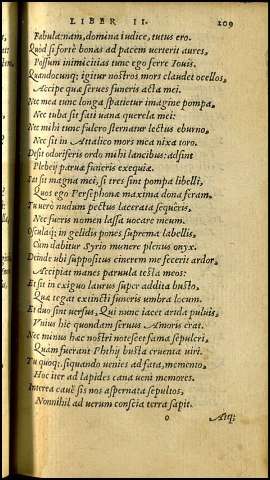 LIBER II. 209
Fabula: nam, domina iudice, tutus ero.
Quòd si fortè bonas ad pacem uerterit aures,
Possum inimicitias tunc ego ferre Iouis.
Quandocunq; igitur nostros mors claudet ocellos,
Accipe quæ serues funeris acta mei.
Nec mea tunc longa spatietur imagine pompa,
Nec tuba sit fati uana querela mei:
Nec mihi tunc fulcro sternatur lectus eburno,
Nec sit in Attalico mors mea nixa toro.
Desit odoriferis ordo mihi lancibus: adsint
Plebeij paruæ funeris exequiæ.
Sat sit magna mei, si tres sint pompa libelli,
Quos ego Persephonæ maxima dona feram.
Tu uerò nudum pectus lacerata sequeris,
Nec fueris nomen lassa uocare meum.
Osculaq; in gelidis pones suprema labellis,
Cum dabitur Syrio munere plenus onyx.
Deinde ubi suppositus cinerem me fecerit ardor,
Accipiat manes paruula testa meos:
Et sit in exiguo laurus super addita busto,
Quæ tegat extincti funeris umbra locum.
Et duo sint uersus, Qui nunc iacet arida puluis,
Vnius hic quondam seruus Amoris erat.
Nec minus hæc nostri notescet fama sepulcri,
Quàm fuerant Phthij busta cruenta uiri.
Tu quoq; si quando uenies ad fata, memento,
Hoc iter ad lapides cana ueni memores.
Interea caue sis nos aspernata sepultos,
Nonnihil ad uerum conscia terra sapit.
o Atq;